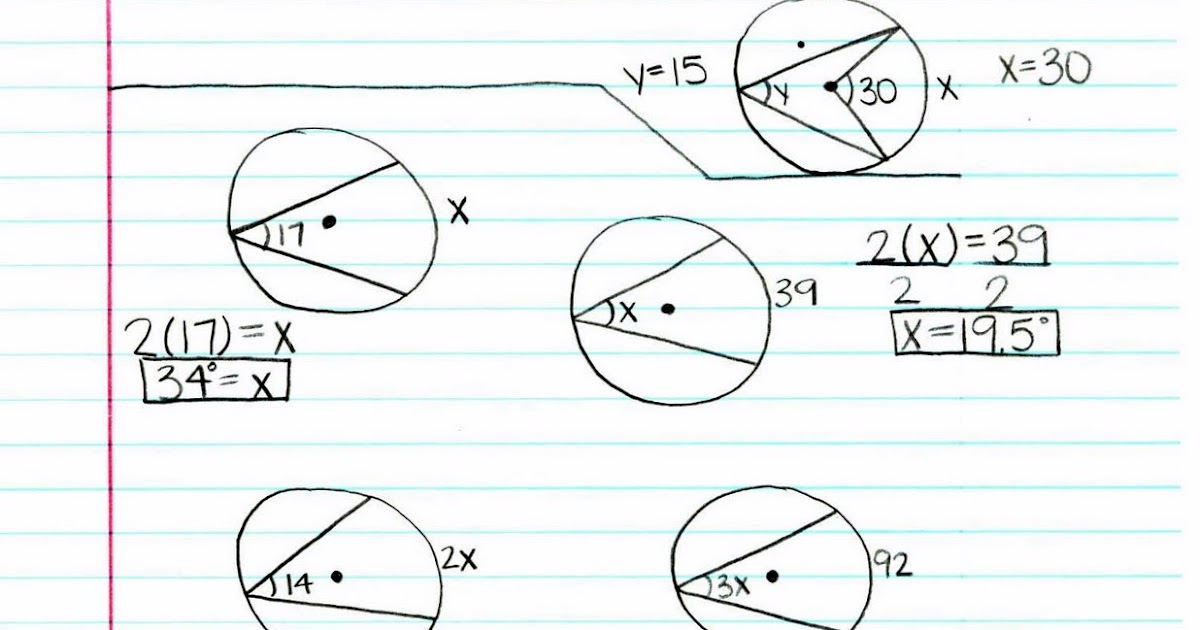 y=15
y
30
x
x=30
17
x
2(17)=x
34°=x
x
39
2(x)=39
2 2
x=19.5°
14
2x
3x
92